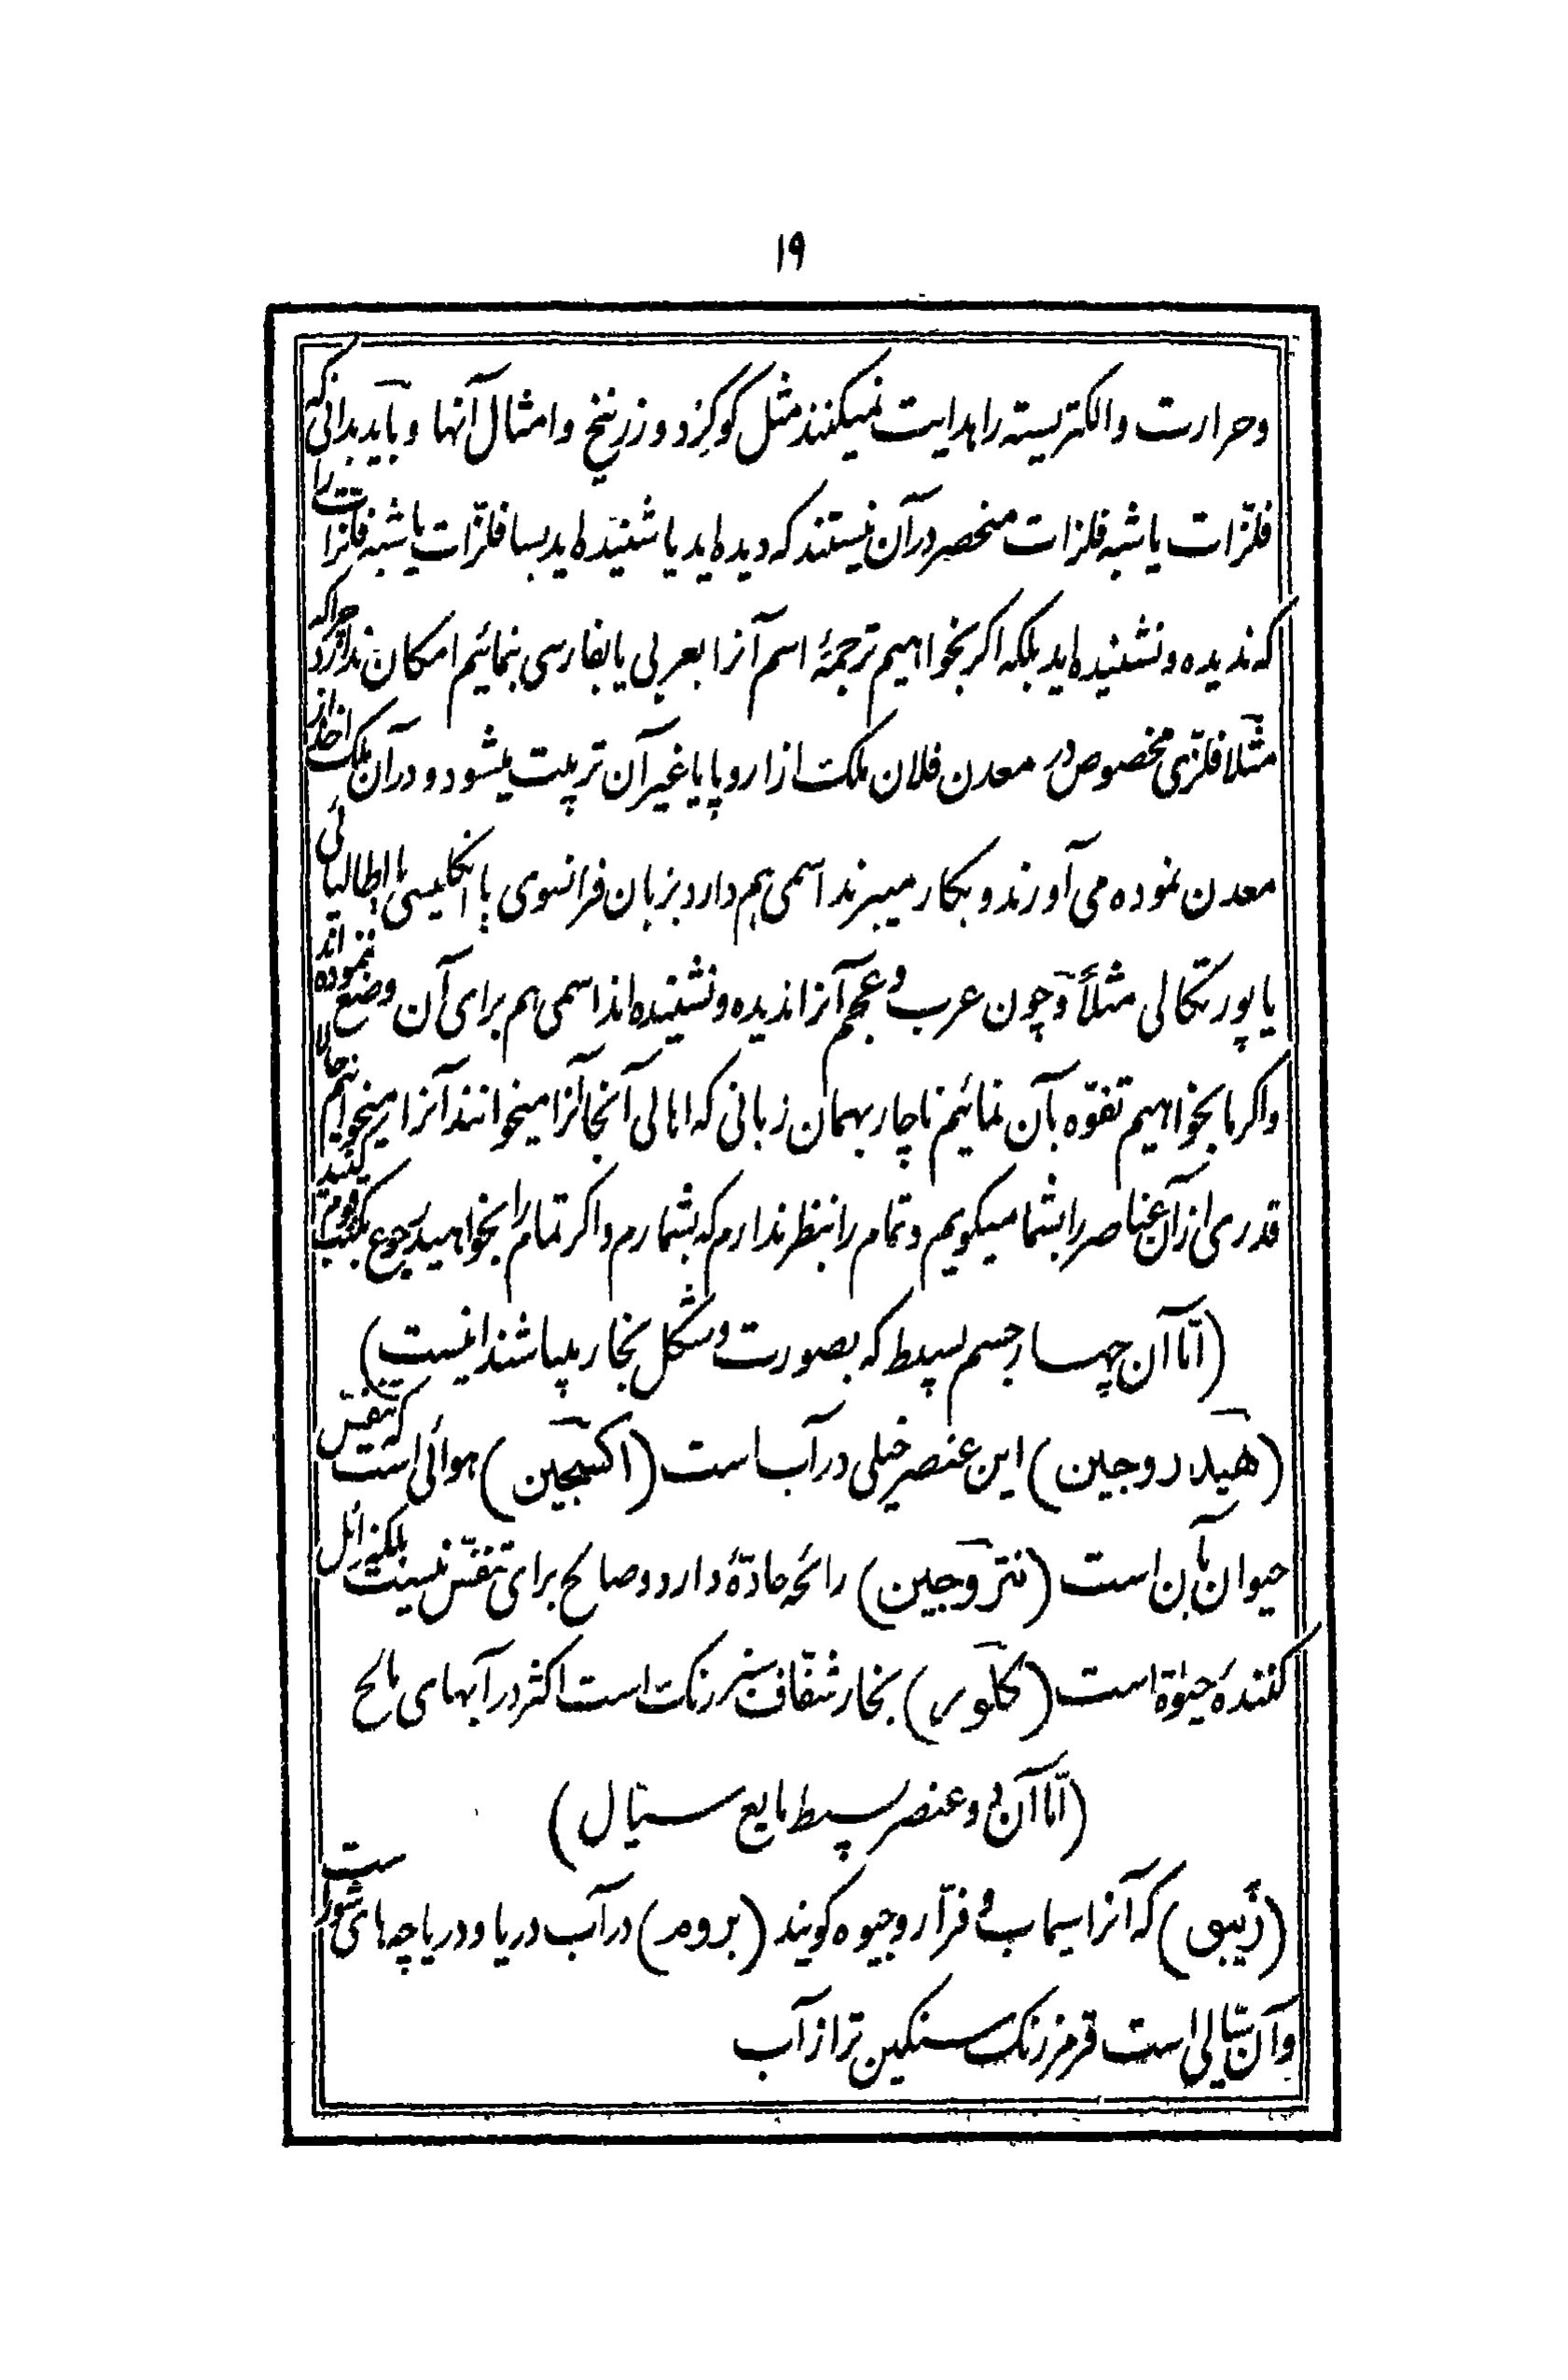 ۱۹
وحرارت والکتریسته را هدایت نمیکنند مثل کوکرد و زرنیخ وامثال آنها وباید بدانی که
فلزّات یا شبه فلزات منحصر درآن نیستند که دیده‌اید یا شنیده‌اید بسا فلزّات یا شبه فلزات را
که ندیده ونشنیده‌اید بلکه اکر بخواهیم ترجمهٔ اسم آنرا بعربی یا بفارسی بنمائیم امکان ندارد چراکه
مثلا فلزّی مخصوص در معدن فلان ملکت از اروپا یا غیر آن تربیت میشود ودرآن ملک اخذ از
معدن نموده می‌آورند وبکار میبرند اسمی هم دارد بزبان فرانسوی یا انکلیسی یا ایطالیائی
یا پورتکالی مثلاً وچون عرب وعجم آنرا ندیده ونشنیده‌اند اسمی هم برای آن وضع ننموده‌اند
واکر ما بخواهیم تفوّه بآن نمائیم ناچار بهمان زبانی که اهالی آنجا آنرا میخوانند آنرا میخوانیم حالا
قدری ازآن عناصر را بشما میکویم وتمام را بنظر ندارم که بشمارم واکر تمام را بخواهید رجوع بکتب قوم کنید
(امّا آن چهار جسم بسیط که بصورت وشکل بخار میباشند اینست)
(هیدروجین) این عنصر خیلی درآب است (اکسیجین) هوائی است که تنفّس
حیوان بآن است (نتروجین) رائحهٔ حادّهٔ دارد وصالح برای تنفّس نیست بلکه زائل
کنندهٔ حیوة است (کلور) بخار شفّاف سبز رنک است اکثر در آبهای مالح
(امّا آن دو عنصر بسیط مایع سیّال)
(زیبق) که آنرا سیماب وفرّار وجیوه کویند (بروم) درآب دریا ودریاچه‌های شور است
وآن سیّالی است قرمز رنک سنکین تر از آب